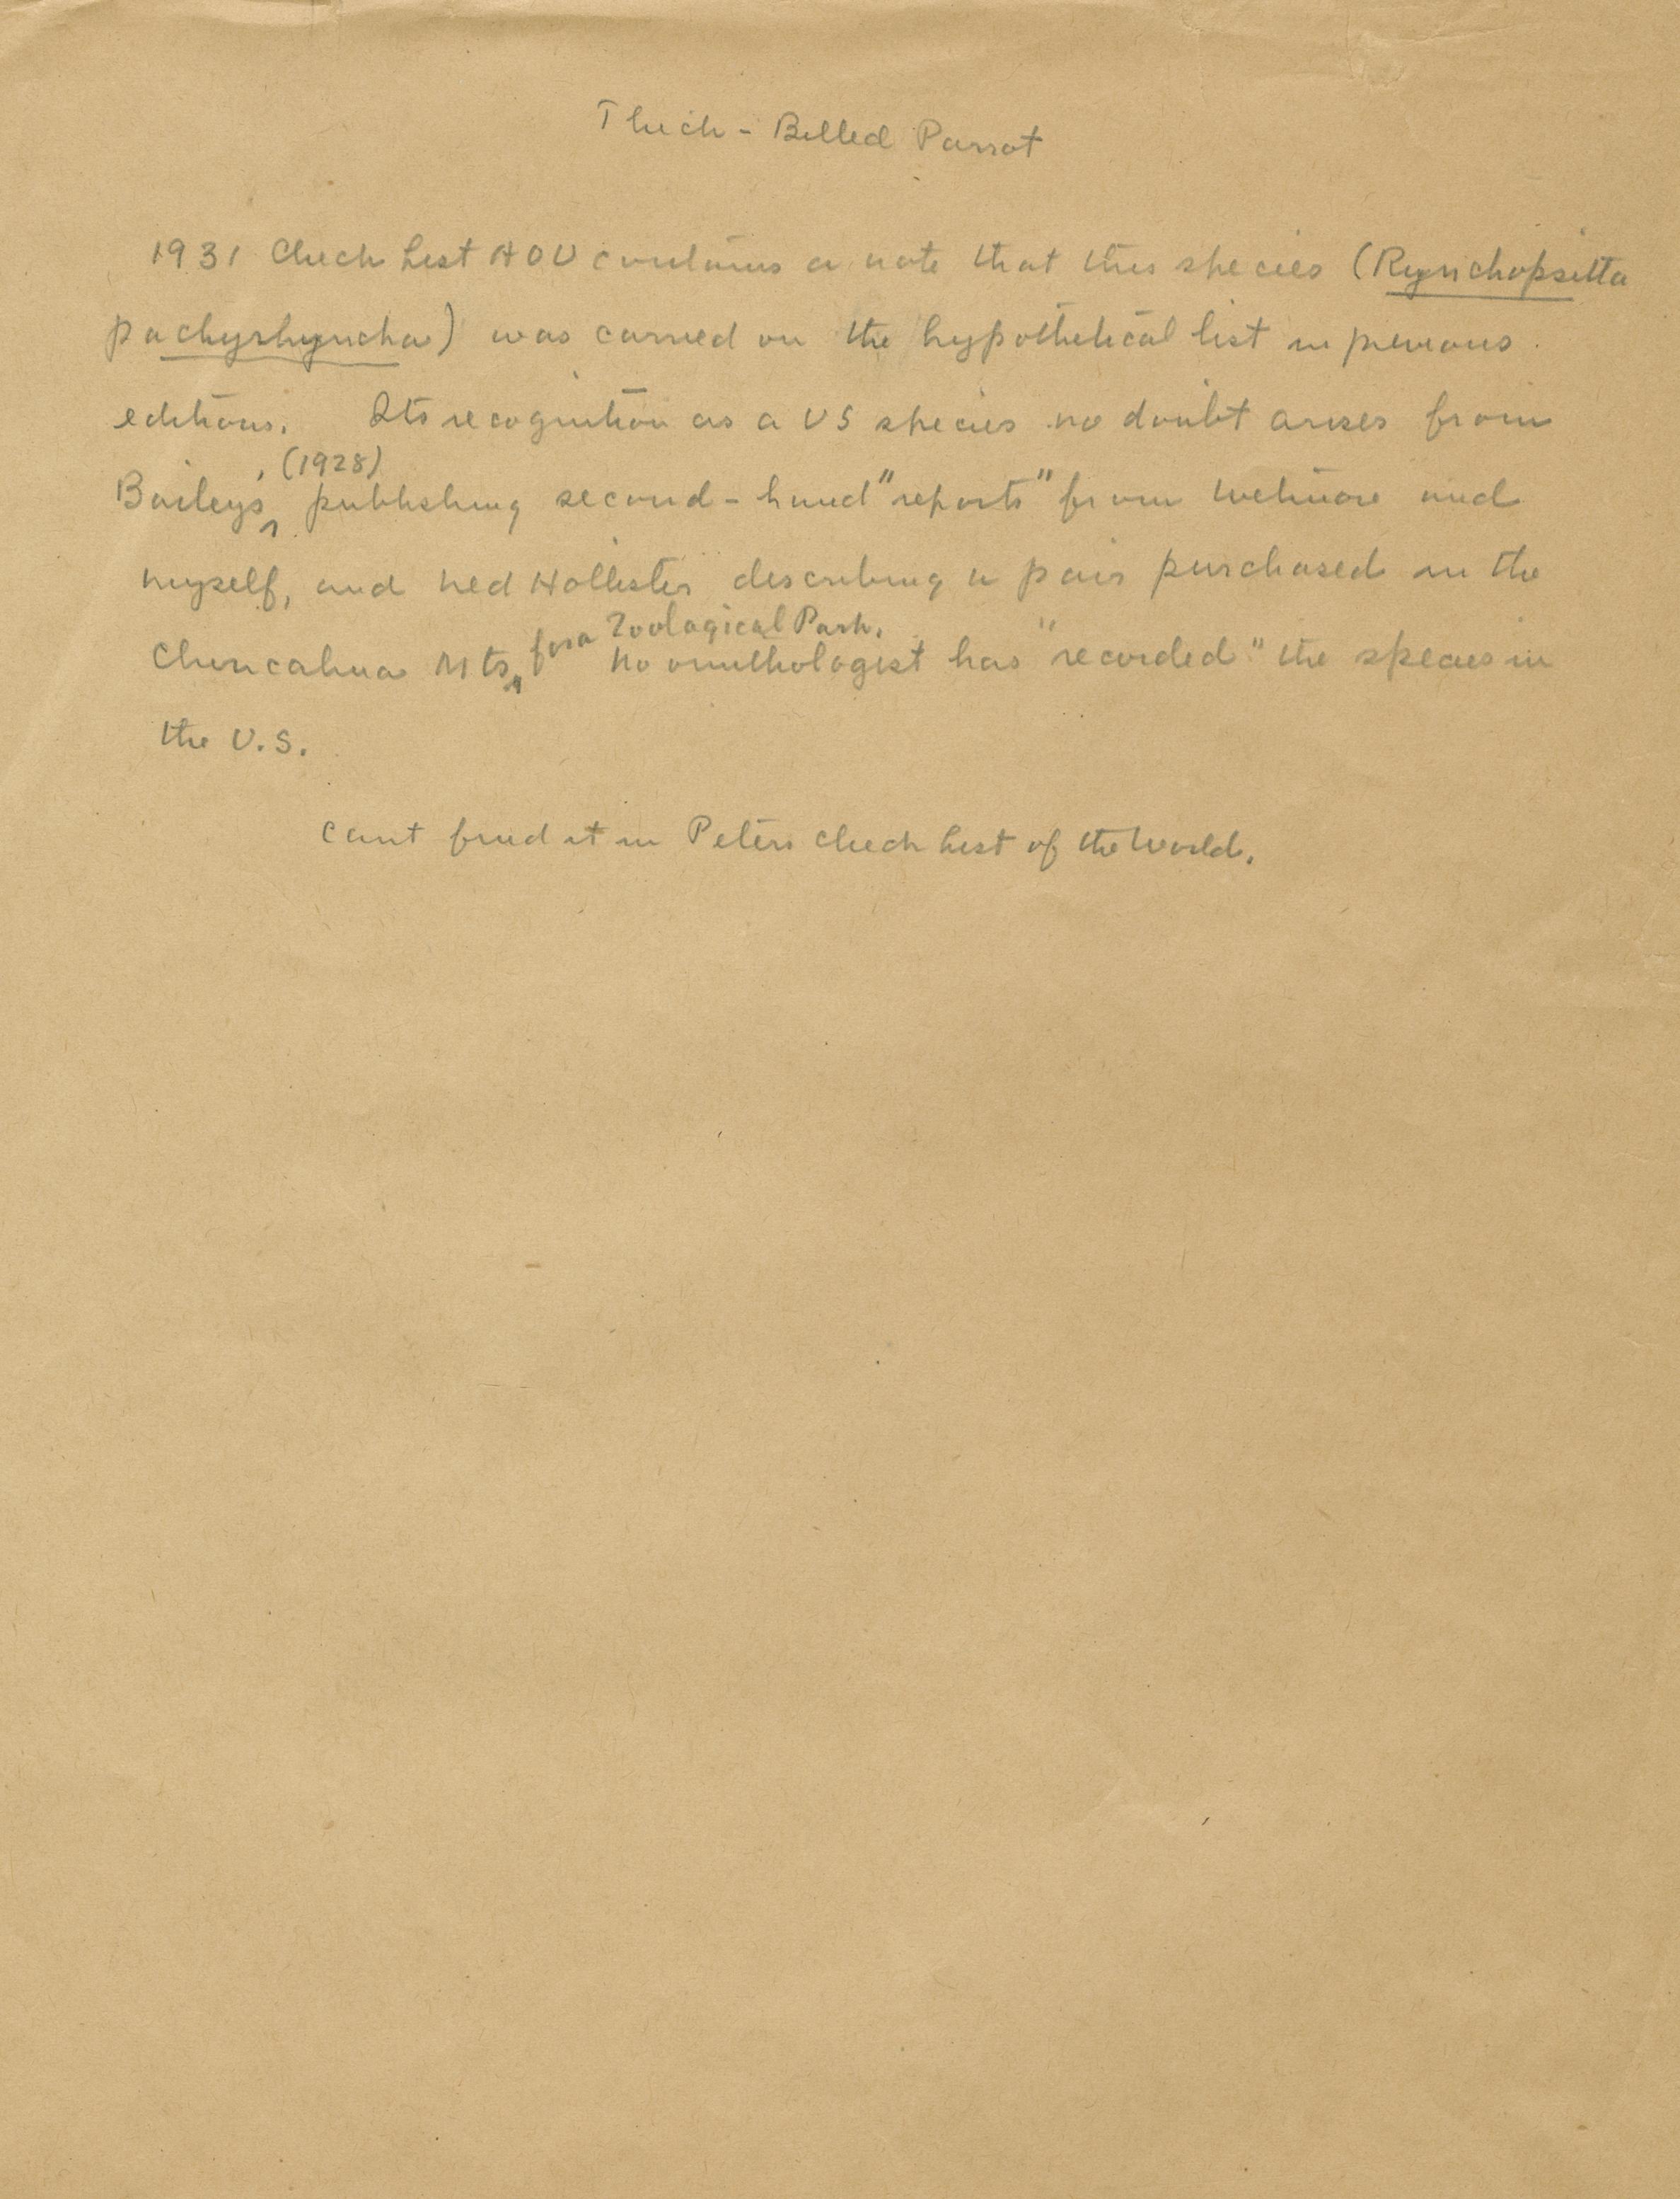 Thick-Billed Parrot
1931 Check List AOU contains a note that this species (Rynchopsitta
pachyrhyncha) was carried on the hypothetical list in previous
editions. Its recognition as a US species no doubt arises from
Bailey's (1928) publishing second-hand "reports" from Wetmore and
myself, and Ned Hollister describing a pair purchased in the
Chiricahua Mts, for a Zoological Park. No ornithologist has "recorded" the species in
the U.S.
Cant find it in Peters Check List of the World.